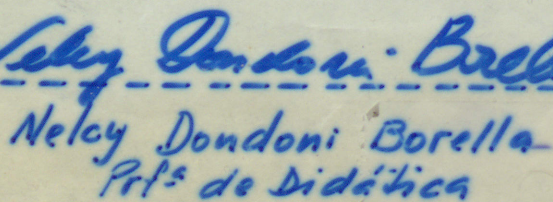 Nelcy Dondoni Borell
Nelcy Dondoni Borella
Prfª de Didática